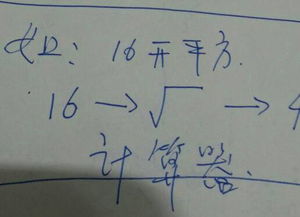 如：16开平方.
16→√→4
计算器.